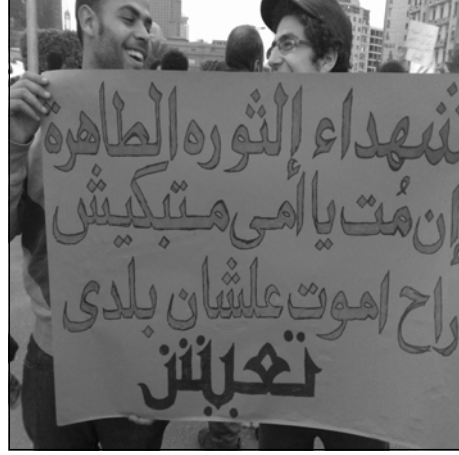 شهداء إلثوره الطاهرة
إن مُت يا أمى متبكيش
راح اموت علشان بلدى
تعيش